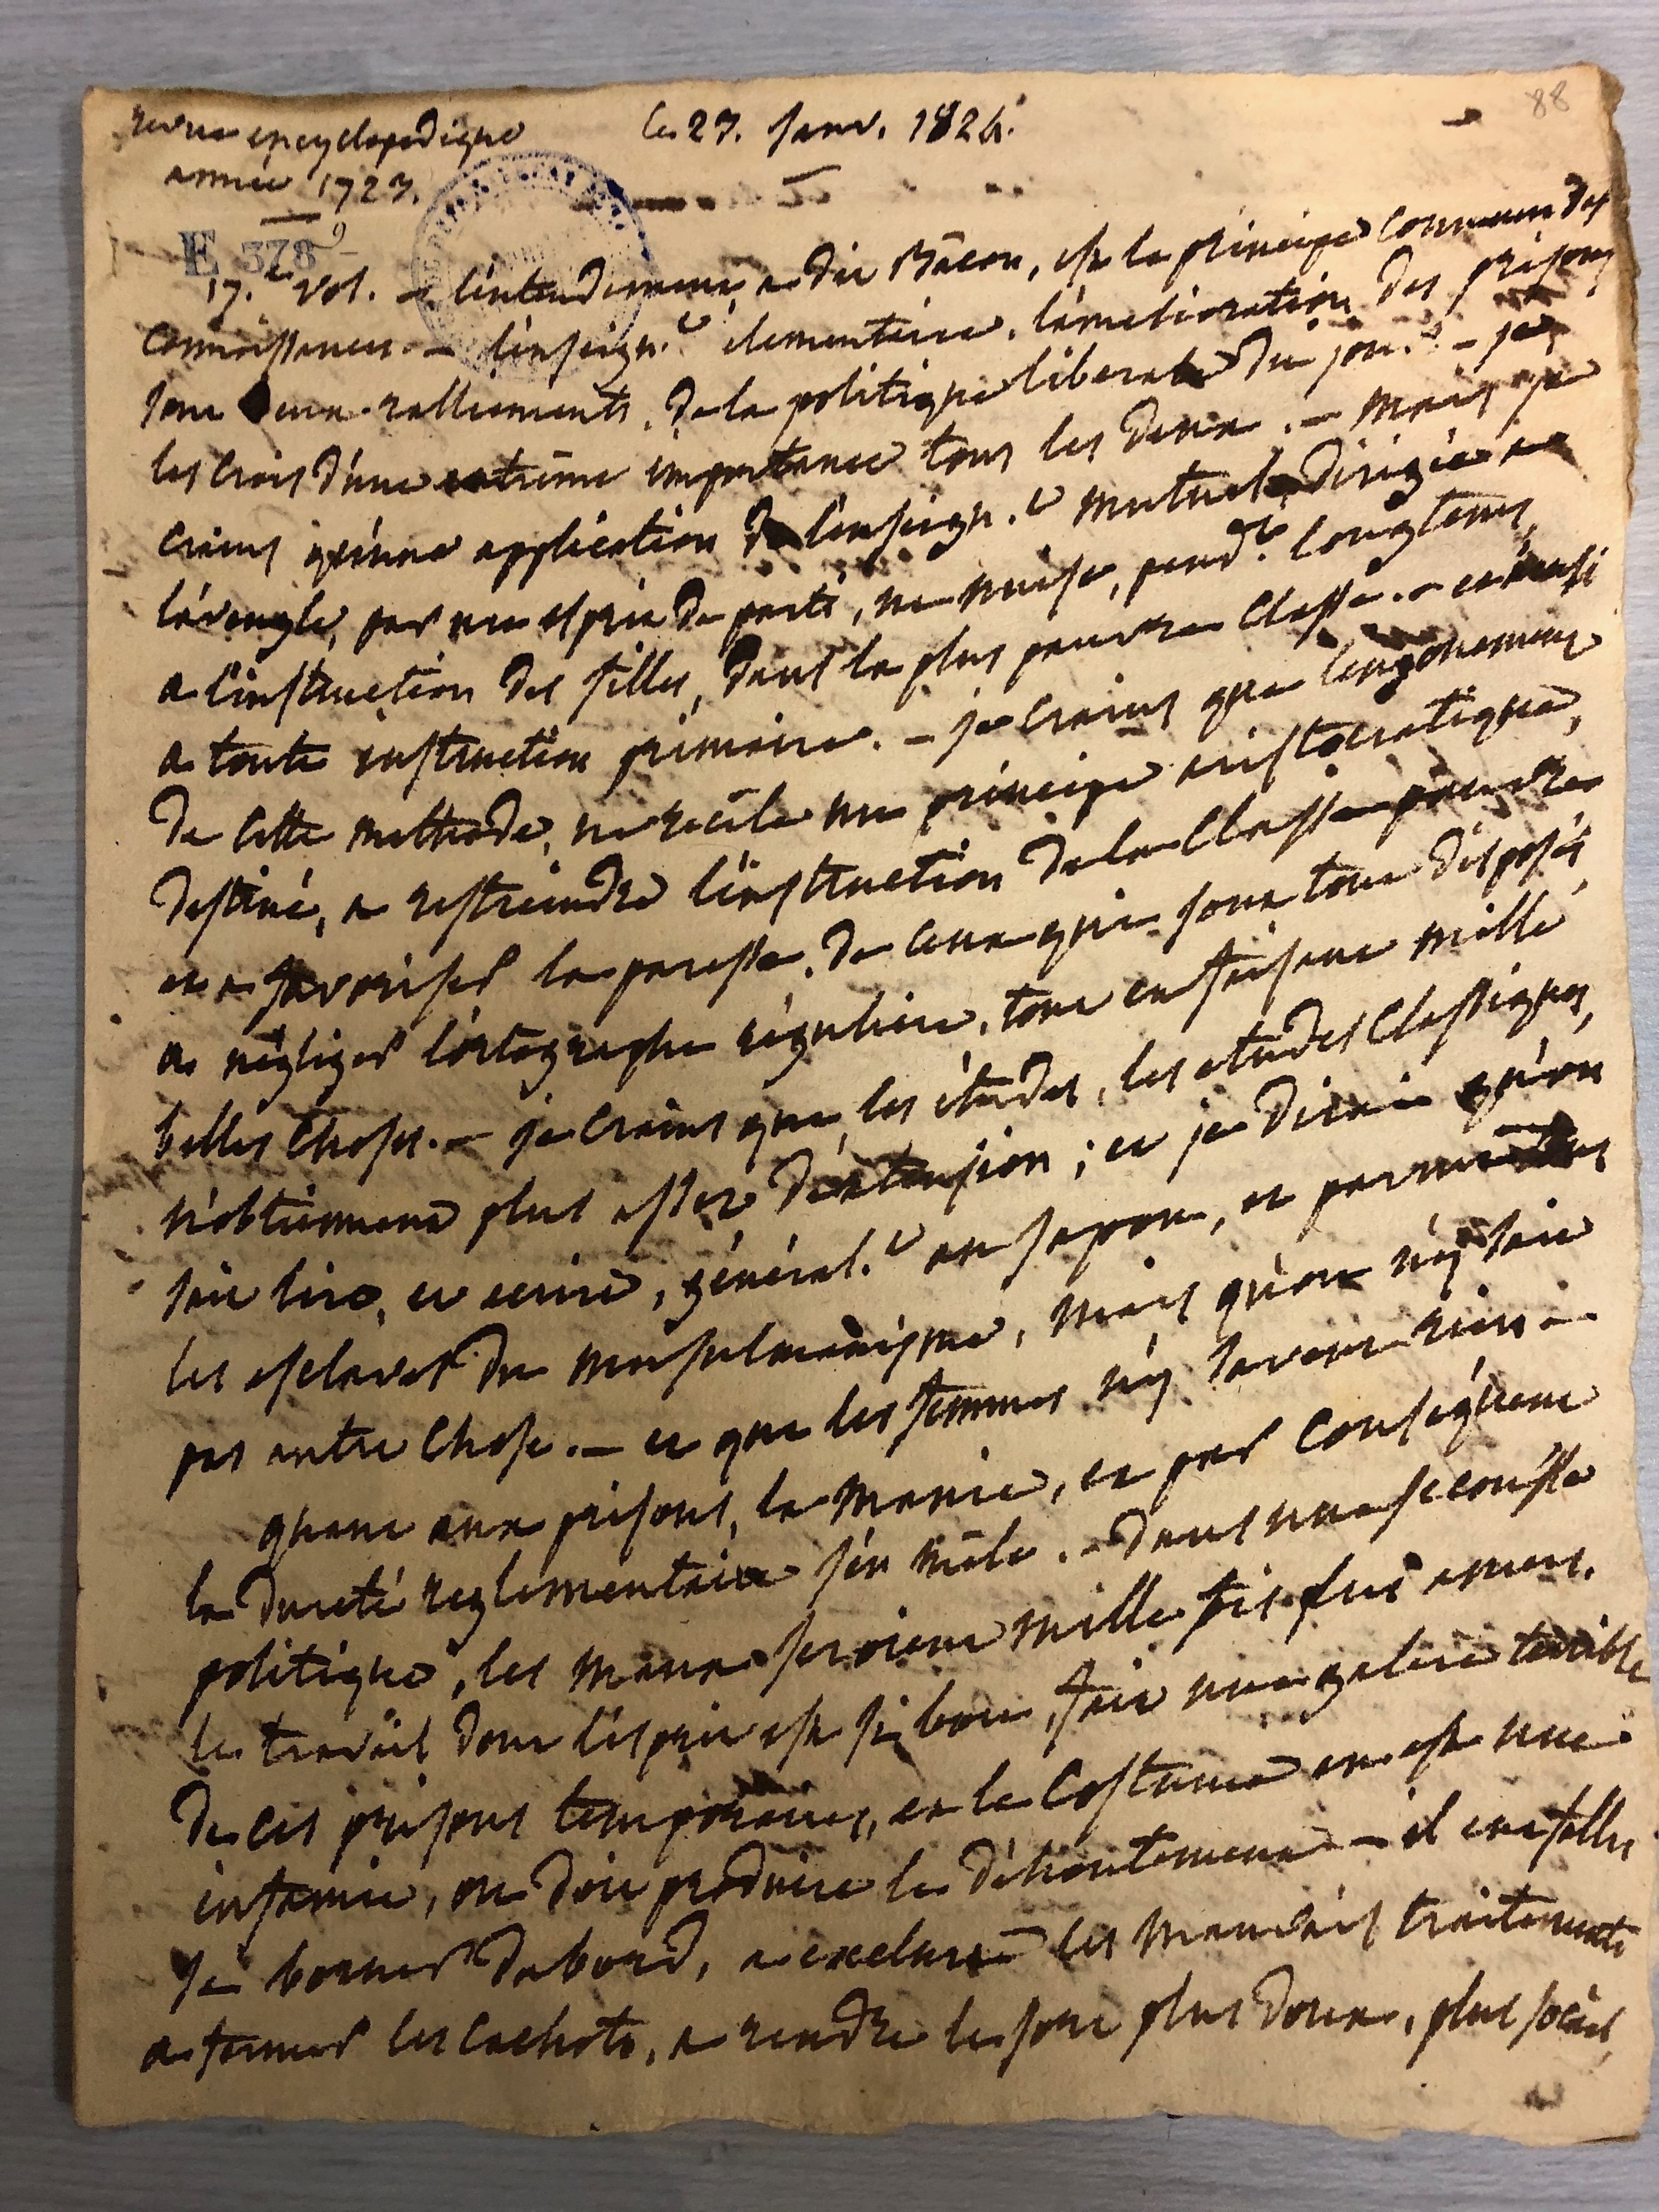 88
revue encyclopedique
année 1723.
le 27. janv. 1824.
E 378 9
17.e vol. — l'entendement, a dit Bâcon, est le principe commun des
connaissances. — l'enseign.t élementaire, l'amélioration des prisons
sont deux ralliements, de la politique liberale du jour. — je
les crois d'une extrême importance tous les deux. — mais je
crains qu'une application de l'enseign.t mutuel dirigée a
l'aveugle, par un esprit de parti, ne nuise, pend.t longtems,
a l'instruction des filles, dans la plus pauvre classe. — et aussi
a toute instruction primaire. — je crains que l'engouement
de cette methode, ne recèle un principe aristocratique,
destiné, a restreindre l'instruction de la classe pauvre
et a favoriser la paresse, de ceux qui sont tout disposés
a négliger l'ortographe régulière, tout en faisant mille
belles choses. — je crains que, les études, les etudes classiques,
n'obtiennent plus assez d'extension ; et je dirai qu'on
sait lire, et ecrire, général.t au japon, et parmi les
les esclaves du musulmanisme, mais qu'on n'y sait
pas autre chose. — et que les femmes n'y savent rien —
quant aux prisons, la manie, et par conséquent
la dureté reglementaire s'en mêle. — dans une secousse
politique, les maux seroient mille fois plus amers.
le travail dont l'esprit est si bon, fait une galère terrible
de ces prisons temporaires, et le costume en est une
infamie, on doit produire le déhontement — il eut fallu
se borner d'abord, a exclure les mauvais traitements
a fermer les cachots, a rendre le sort plus doux, plus social,